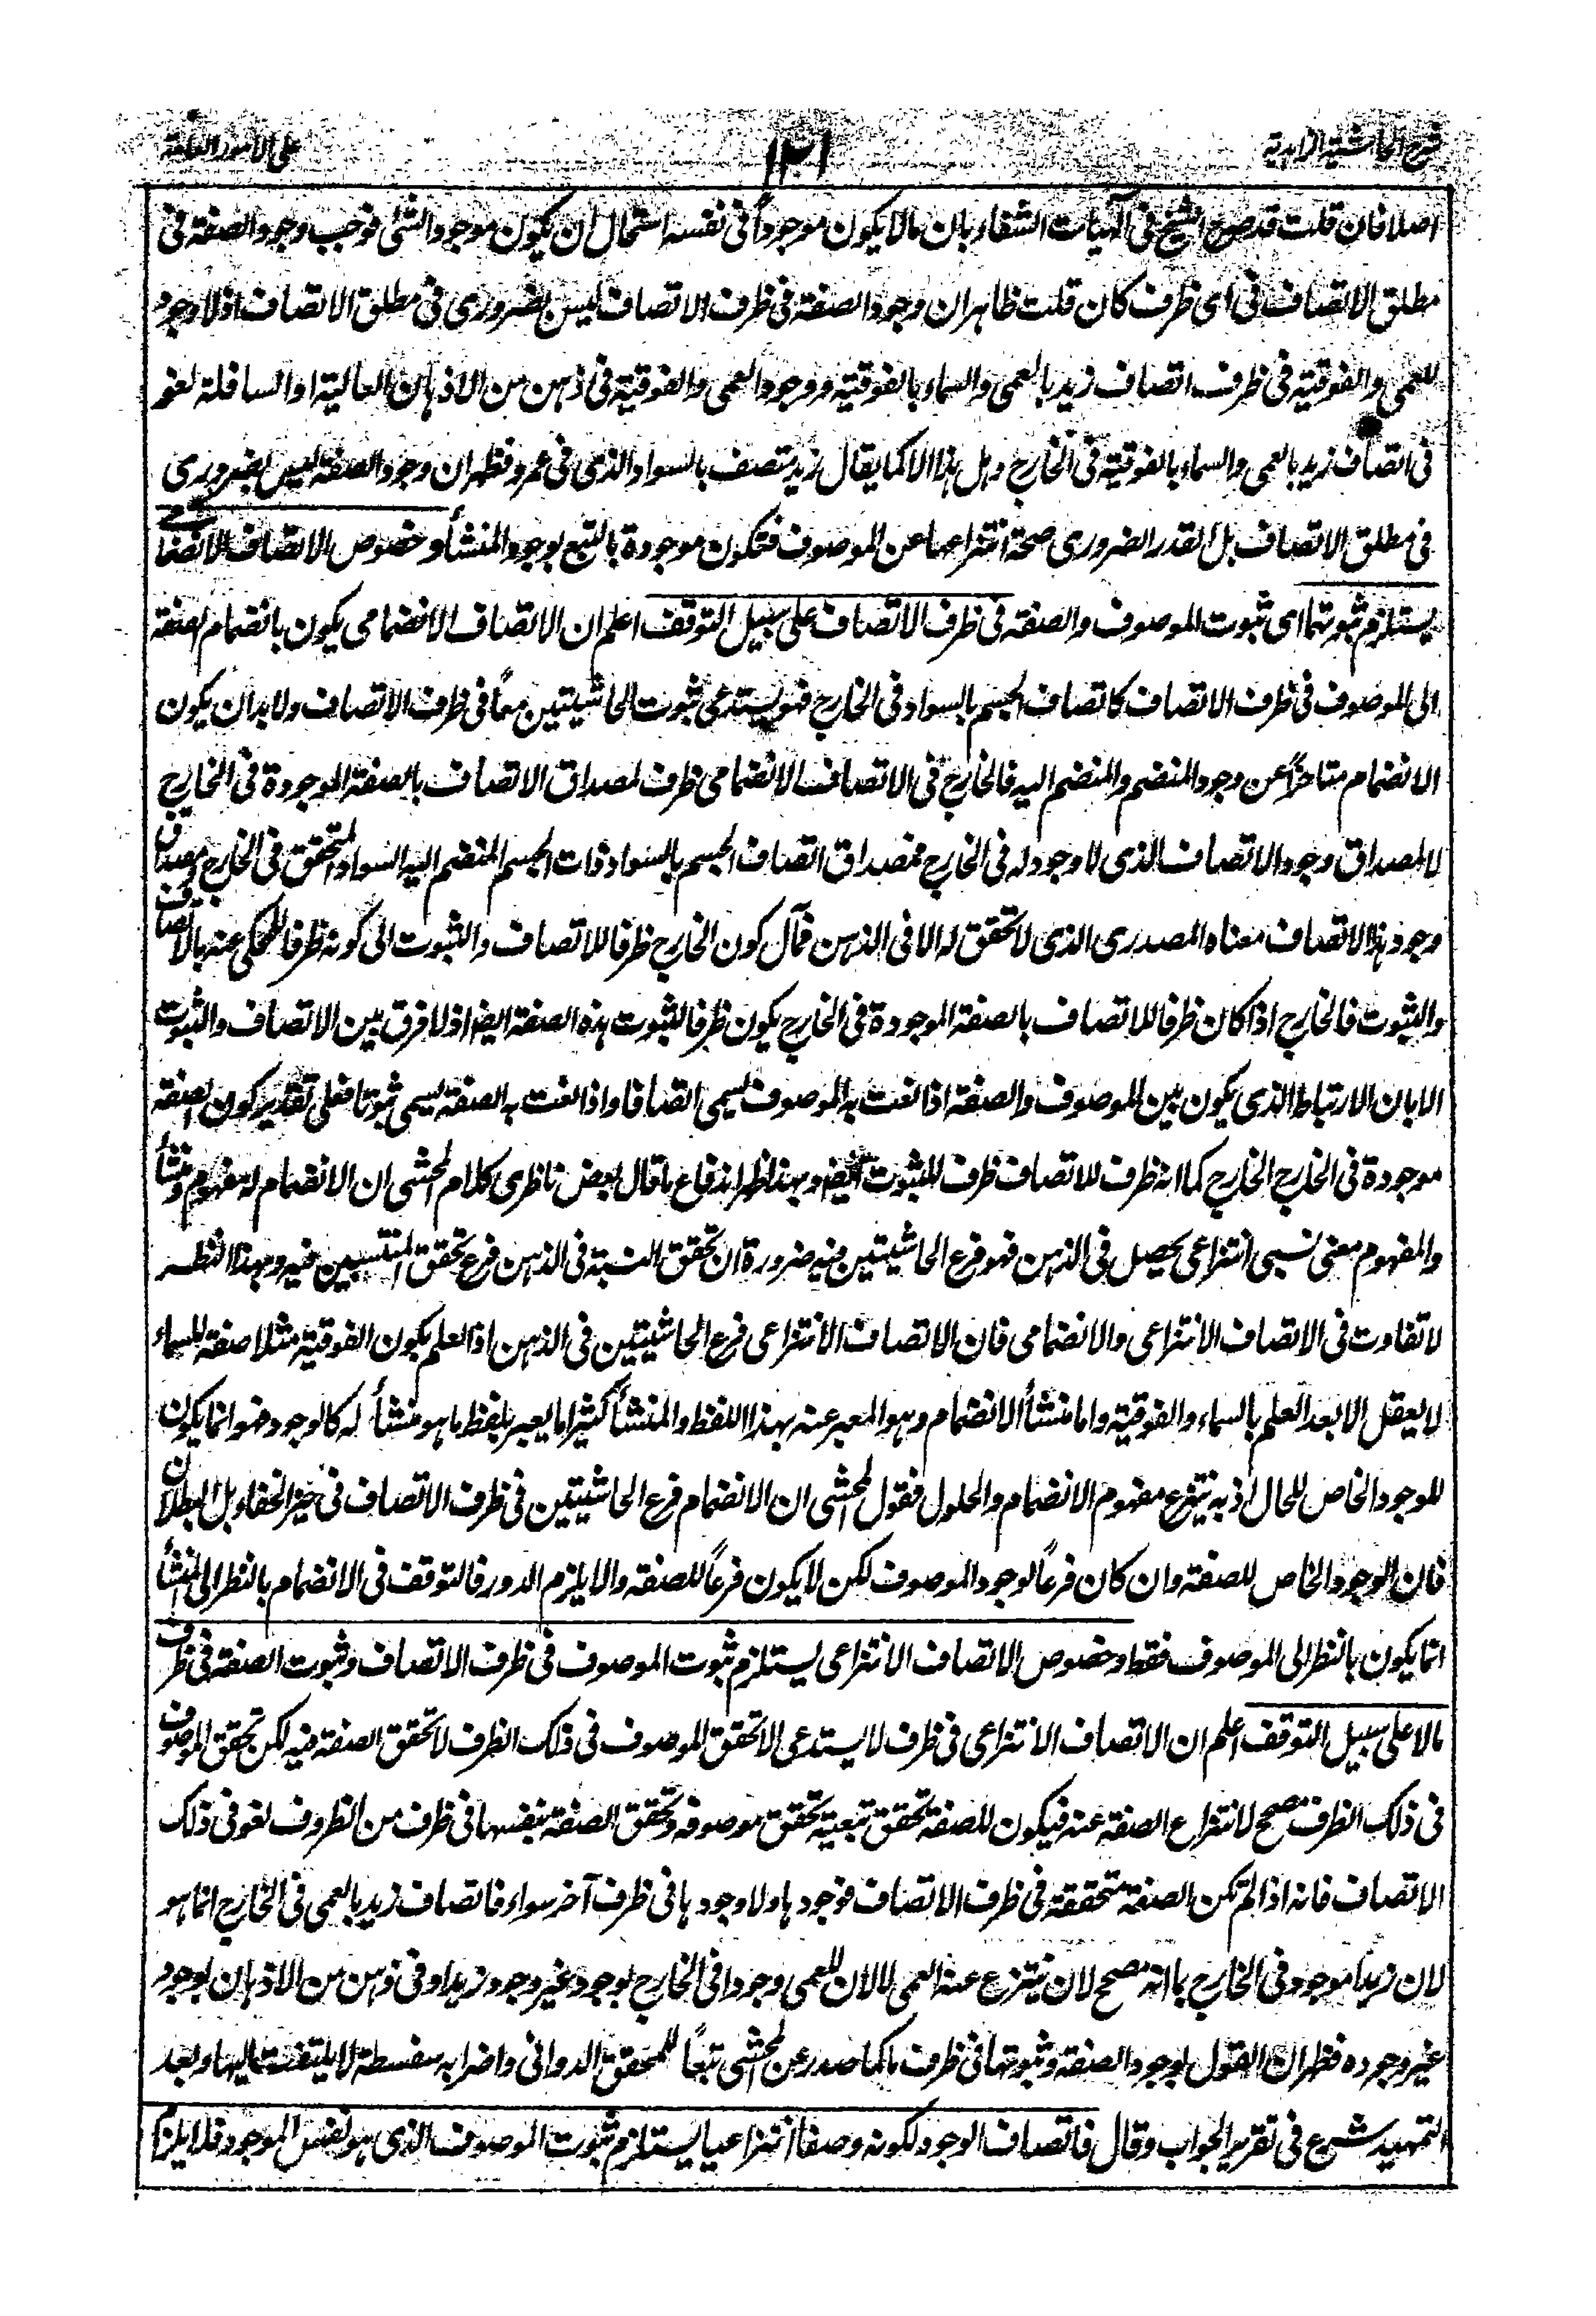 شرح الحاشية الزاهدية
١٢١
على الامور العامة
اصلا فان قلت قد صرح الشيخ فى آلهيات الشفاء بان مالا يكون موجوداً فى نفسه استحال ان يكون موجودا لشئ فوجب وجود الصفة فى
مطلق الاتصاف فى اى ظرف كان قلت ظاهر ان وجود الصفة فى ظرف الاتصاف ليس بضرورى فى مطلق الاتصاف اذ لا وجود
للعمى والفوقية فى ظرف اتصاف زيد بالعمى والسماء بالفوقية ووجود العمى والفوقية فى ذهن من الاذهان العالية او السافلة لغو
فى اتصاف زيد بالعمى والسماء بالفوقية فى الخارج وهل هذا الا كما يقال زيد متصف بالسواد الذى فى عمرو فظهر ان وجود الصفة ليس بضرورى
فى مطلق الاتصاف بل القدر الضرورى صحة انتزاعها عن الموصوف فتكون موجودة بالتبع بوجود المنشأ وخصوص الاتصاف الانضمامى
يستلزم ثبوتهما اى ثبوت الموصوف والصفة فى ظرف الاتصاف على سبيل التوقف اعلم ان الاتصاف الانضمامى يكون بانضمام الصفة
الى الموصوف فى ظرف الاتصاف كاتصاف الجسم بالسواد فى الخارج فهو يستدعى ثبوت الحاشيتين معاً فى ظرف الاتصاف ولابد ان يكون
الانضمام متاخراً عن وجود المنضم والمنضم اليه فالخارج فى الاتصاف الانضمامى ظرف لمصداق الاتصاف بالصفة الموجودة فى الخارج
لا لمصداق وجود الاتصاف الذى لا وجود له فى الخارج فمصداق اتصاف الجسم بالسواد ذات الجسم المنضم اليه السواد المتحقق فى الخارج ومصداق
وجود هذا الاتصاف معناه المصدرى الذى لا تحقق له الا فى الذهن فمآل كون الخارج ظرفا للاتصاف والثبوت الى كونه ظرفا للمحكى عنه بالاتصاف
والثبوت فالخارج اذا كان ظرفا للاتصاف بالصفة الموجودة فى الخارج يكون ظرفا لثبوت هذه الصفة ايضا اذ لا فرق بين الاتصاف والثبوت
الا بان الارتباط الذى يكون بين الموصوف والصفة اذا نعت به الموصوف يسمى اتصافا واذا نعت به الصفة يسمى ثبوتا فعلى تقدير كون الصفة
موجودة فى الخارج الخارج كما انه ظرف للاتصاف ظرف للثبوت ايضا وبهذا ظهر اندفاع ما قال بعض ناظرى كلام المحشى ان الانضمام له مفهوم ومنشأ
والمفهوم معنى نسبى انتزاعى يحصل فى الذهن فهو فرع الحاشيتين فيه ضرورة ان تحقق النسبة فى الذهن فرع تحقق المنتسبين فيه وبهذا النظر
لا تفاوت فى الاتصاف الانتزاعى والانضمامى فان الاتصاف الانتزاعى فرع الحاشيتين فى الذهن اذ العلم بكون الفوقية مثلا صفة للسماء
لا يعقل الا بعد العلم بالسماء والفوقية واما منشأ الانضمام وهو المعبر عنه بهذا اللفظ والمنشأ كثيرا ما يعبر بلفظ ما هو منشأ له كالوجود فهو انما يكون
للوجود الخاص للحال اذ به ينتزع مفهوم الانضمام والحلول فقول المحشى ان الانضمام فرع الحاشيتين فى ظرف الاتصاف فى حيز الخفاء بل البطلان
فان الوجود الخاص للصفة وان كان فرعاً لوجود الموصوف لكن لا يكون فرعاً للصفة والا يلزم الدور فالتوقف فى الانضمام بالنظر الى المنشأ
انما يكون بالنظر الى الموصوف فقط وخصوص الاتصاف الانتزاعى يستلزم ثبوت الموصوف فى ظرف الاتصاف وثبوت الصفة فى ظرف
ما لا على سبيل التوقف اعلم ان الاتصاف الانتزاعى فى ظرف لا يستدعى الا تحقق الموصوف فى ذلك الظرف لا تحقق الصفة فيه لكن تحقق الموصوف
فى ذلك الظرف مصحح لانتزاع الصفة عنه فيكون للصفة تحقق تبعية تحقق موصوفه وتحقق الصفة بنفسها فى ظرف من الظروف لغو فى ذلك
الاتصاف فانه اذا لم تكن الصفة متحققة فى ظرف الاتصاف فوجودها ولا وجودها فى ظرف آخر سواء فاتصاف زيد بالعمى فى الخارج انما هو
لان زيدا موجود فى الخارج بانه مصحح لان ينتزع عنه العمى لا لان للعمى وجودا فى الخارج بوجود غير وجود زيد او فى ذهن من الاذهان بوجود
غير وجوده فظهر ان القول بوجود الصفة وثبوتها فى ظرف ما كما صدر عن المحشى تبعاً للمحقق الدوانى واضرابه سفسطة لا يلتفت اليها وبعد
التمهيد شرع فى تقرير الجواب وقال فاتصاف الوجود لكونه وصفا انتزاعيا يستلزم ثبوت الموصوف الذى هو نفس الموجود فلا يلزم